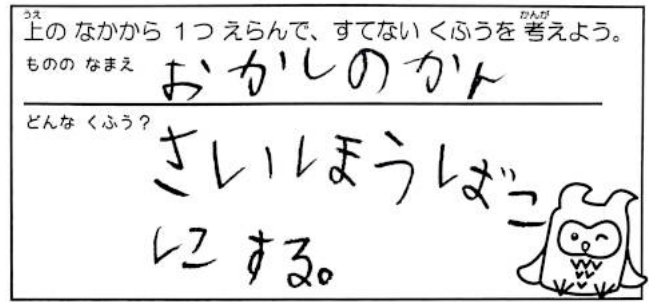 上の なかから 1つ えらんで、すてない くふうを 考えよう。
ものの なまえ
おかしのかん
どんな くふう？
さいほうばこ
にする。